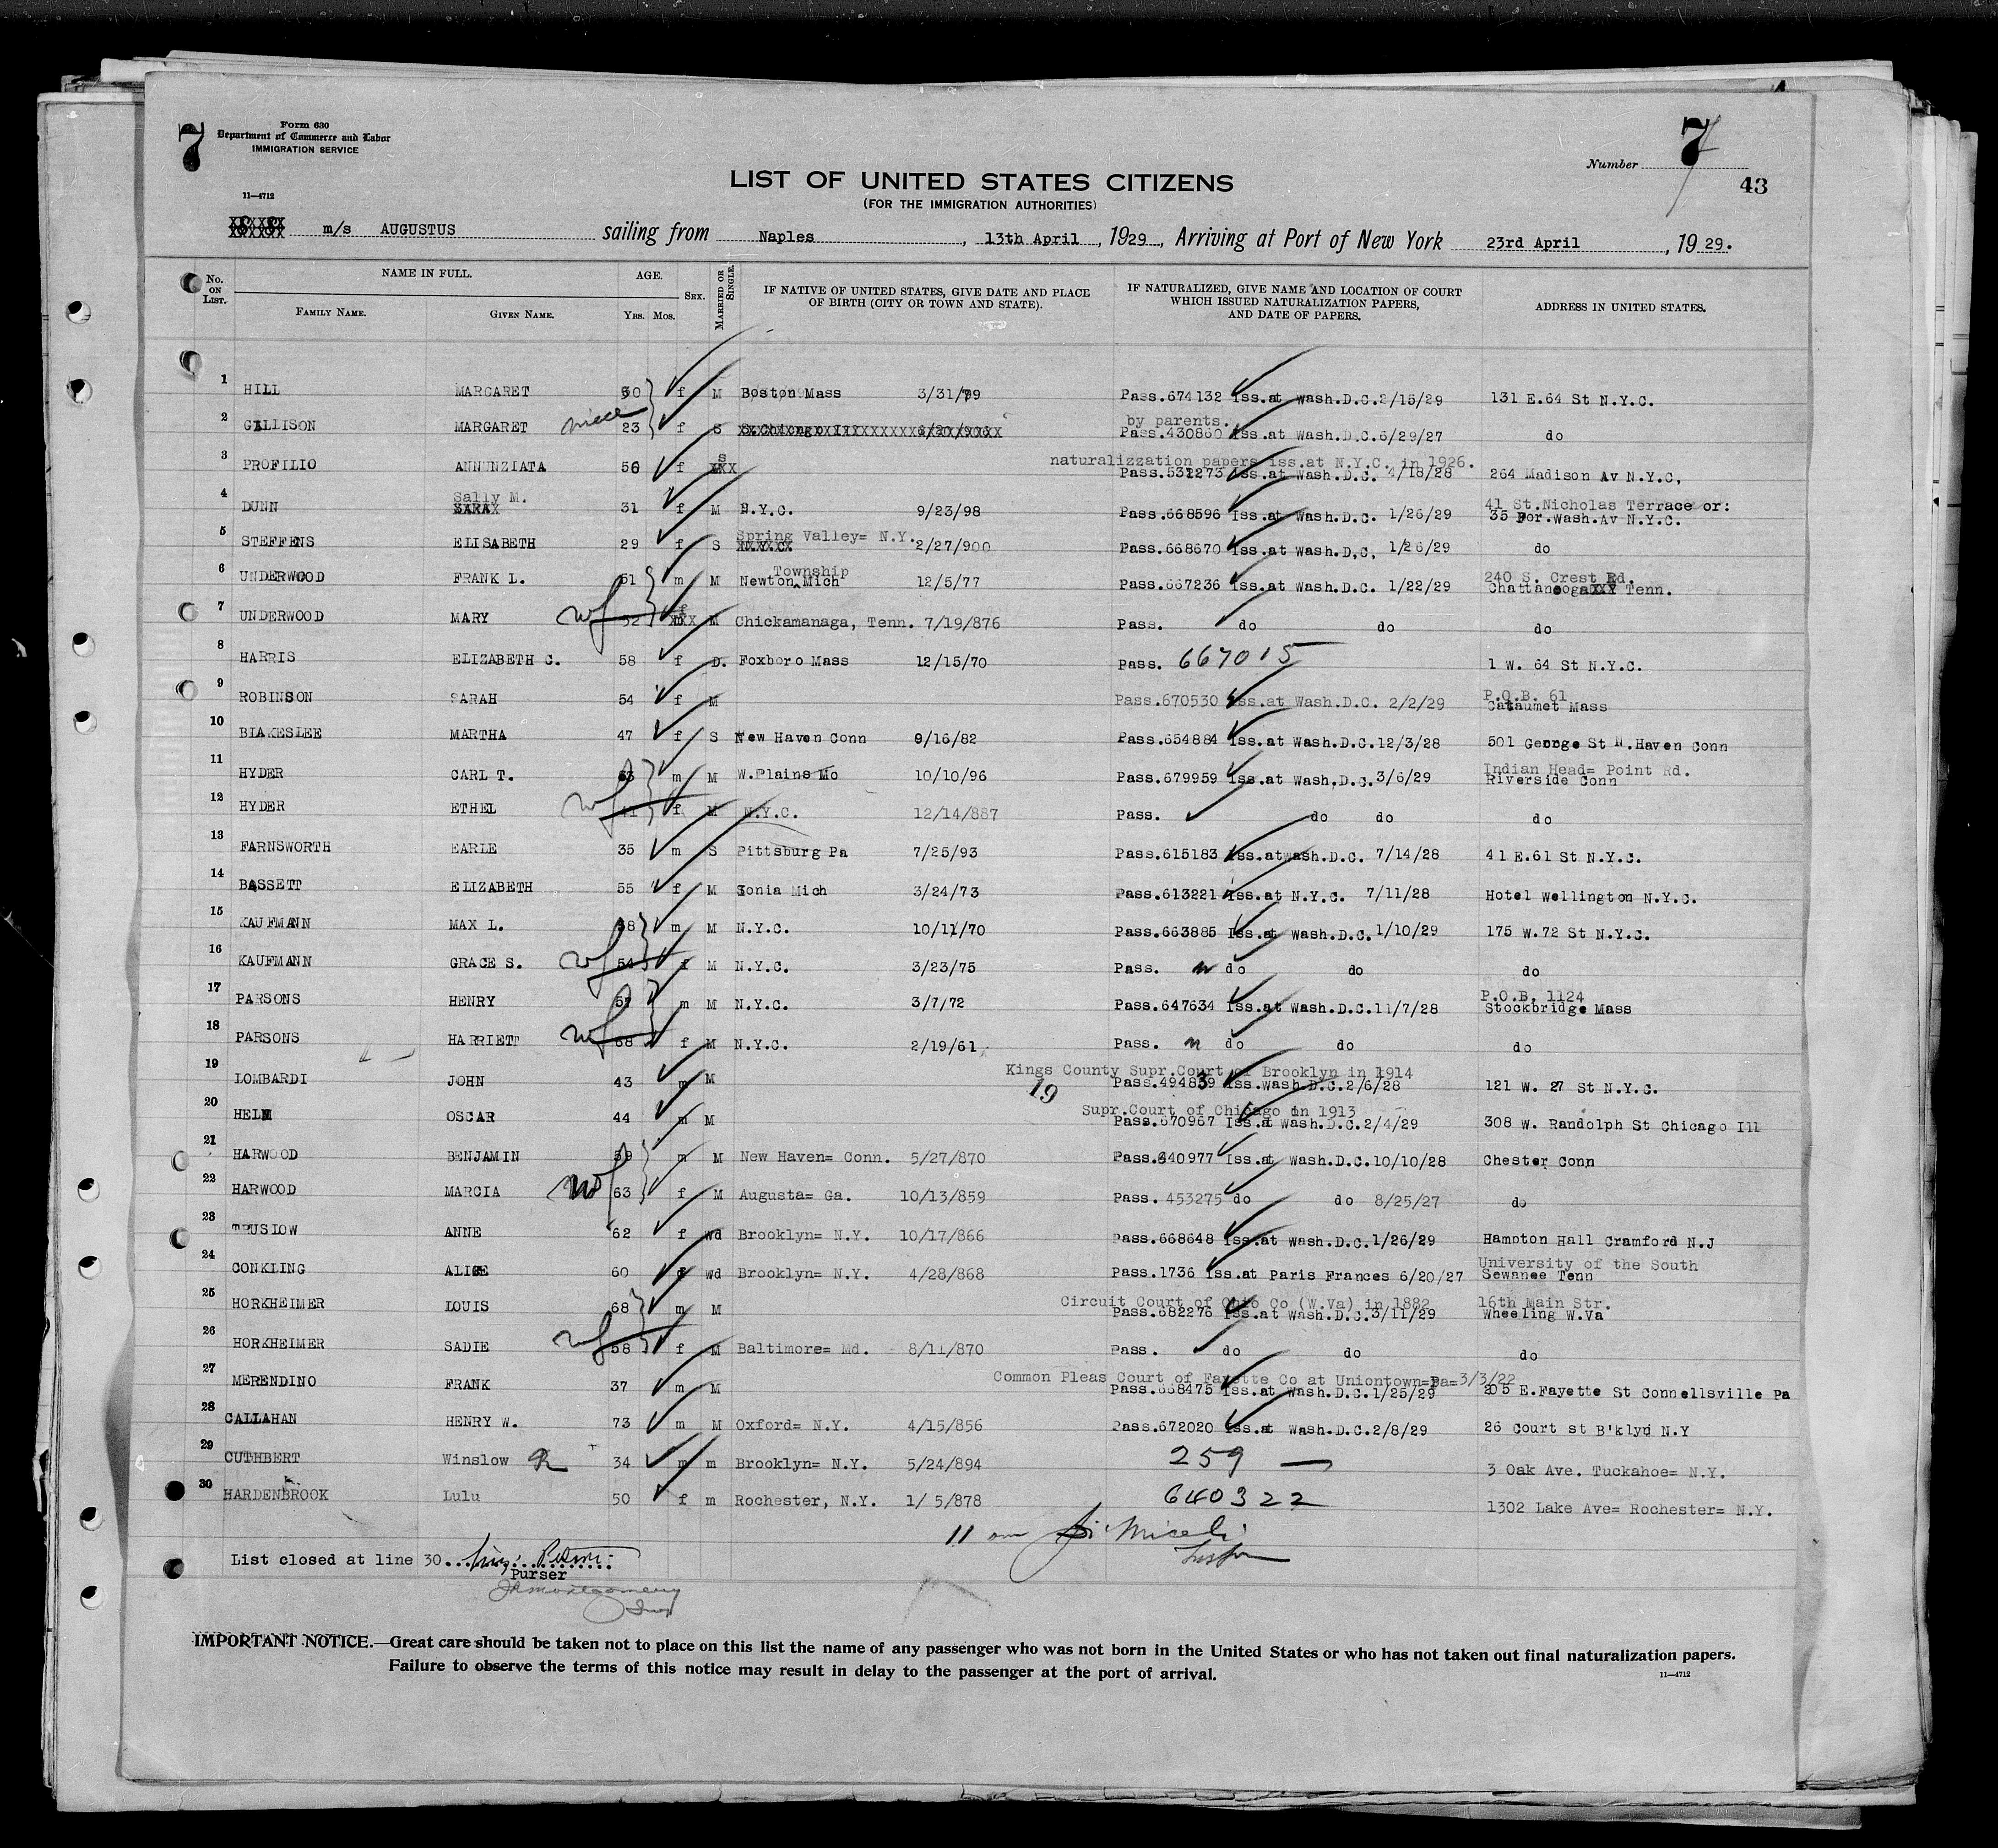 7
Form 630
Department of Commerce and Labor
IMMIGRATION SERVICE
11—4712
Number 7
43
LIST OF UNITED STATES CITIZENS
(FOR THE IMMIGRATION AUTHORITIES)
m/s AUGUSTUS sailing from Naples, 13th April, 1929, Arriving at Port of New York 23rd April, 1929.
No. ON LIST. NAME IN FULL. FAMILY NAME. GIVEN NAME. AGE. YRS. MOS. SEX. MARRIED OR SINGLE. IF NATIVE OF UNITED STATES, GIVE DATE AND PLACE OF BIRTH (CITY OR TOWN AND STATE). IF NATURALIZED, GIVE NAME AND LOCATION OF COURT WHICH ISSUED NATURALIZATION PAPERS, AND DATE OF PAPERS. ADDRESS IN UNITED STATES.
1 HILL MARGARET 50 f M Boston Mass 3/31/79 Pass.674132 Iss.at Wash.D.C.2/15/29 131 E.64 St N.Y.C.
by parents.
2 GALLISON MARGARET niece 23 f S Pass.430860 Iss.at Wash.D.C.6/29/27 do
naturalizzation papers iss.at N.Y.C. in 1926.
3 PROFILIO ANNUNZIATA 56 f s Pass.531273 Iss.at Wash.D.C. 4/18/28 264 Madison Av N.Y.C,
Sally M. 41 St.Nicholas Terrace or:
4 DUNN 31 f M N.Y.C. 9/23/98 Pass.668596 Iss.at Wash.D.C. 1/26/29 35 For.Wash.Av N.Y.C.
Spring Valley= N.Y.
5 STEFFENS ELISABETH 29 f S 2/27/900 Pass.668670 Iss.at Wash.D,C, 1/26/29 do
Township 240 S. Crest Rd.
6 UNDERWOOD FRANK L. 51 m M Newton Mich 12/5/77 Pass.667236 Iss.at Wash.D.C. 1/22/29 Chattanooga Tenn.
7 UNDERWOOD MARY wf 52 f M Chickamanaga, Tenn. 7/19/876 Pass. do do do
8 HARRIS ELIZABETH C. 58 f D. Foxboro Mass 12/15/70 Pass. 667015 1 W. 64 St N.Y.C.
P.O.B. 61
9 ROBINSON SARAH 54 f M Pass.670530 Iss.at Wash.D.C. 2/2/29 Cataumet Mass
10 BLAKESLEE MARTHA 47 f S New Haven Conn 9/16/82 Pass.654884 Iss.at Wash.D.C.12/3/28 501 George St N.Haven Conn
Indian Head= Point Rd.
11 HYDER CARL T. m M W.Plains Mo 10/10/96 Pass.679959 Iss.at Wash.D.C.3/6/29 Riverside Conn
12 HYDER ETHEL wf 41 f M N.Y.C. 12/14/887 Pass. do do do
13 FARNSWORTH EARLE 35 m S Pittsburg Pa 7/25/93 Pass.615183 Iss.atWash.D.C. 7/14/28 41 E.61 St N.Y.C.
14 BASSETT ELIZABETH 55 f M Ionia Mich 3/24/73 Pass.613221 Iss.at N.Y.C. 7/11/28 Hotel Wellington N.Y.C.
15 KAUFMANN MAX L. 58 m M N.Y.C. 10/11/70 Pass.663885 Iss.at Wash.D.C.1/10/29 175 W.72 St N.Y.C.
16 KAUFMANN GRACE S. wf 54 f M N.Y.C. 3/23/75 Pass. do do do
P.O.B. 1124
17 PARSONS HENRY 57 m M N.Y.C. 3/7/72 Pass.647634 Iss.at Wash.D.C.11/7/28 Stockbridge Mass
18 PARSONS HARRIETT wf 68 f M N.Y.C. 2/19/61 Pass. do do do
Kings County Supr.Court of Brooklyn in 1914
19 LOMBARDI JOHN 43 m M 19 Pass.494839 Iss.Wash D.C.2/6/28 121 W. 27 St N.Y.C.
Supr.Court of Chicago in 1913
20 HELM OSCAR 44 m M Pass.670967 Iss.at Wash.D.C.2/4/29 308 W. Randolph St Chicago Ill
21 HARWOOD BENJAMIN 59 m M New Haven= Conn. 5/27/870 Pass.640977 Iss.at Wash.D.C.10/10/28 Chester Conn
22 HARWOOD MARCIA wf 63 f M Augusta= Ga. 10/13/859 Pass. 453275 do do 8/25/27 do
23 TRUSLOW ANNE 62 f wd Brooklyn= N.Y. 10/17/866 Pass.668648 Iss.at Wash.D.C.1/26/29 Hampton Hall Cramford N.J
University of the South
24 CONKLING ALICE 60 f wd Brooklyn= N.Y. 4/28/868 Pass.1736 Iss.at Paris Frances 6/20/27 Sewanee Tenn
Circuit Court of Ohio Co (W.Va) in 1882 16th Main Str.
25 HORKHEIMER LOUIS 68 m M Pass.682276 Iss.at Wash.D.C.3/11/29 Wheeling W.Va
26 HORKHEIMER SADIE wf 58 f M Baltimore= Md. 8/11/870 Pass. do do do
Common Pleas Court of Fayette Co at Uniontown=Pa=3/3/22
27 MERENDINO FRANK 37 m M Pass.668475 Iss.at Wash.D.C.1/25/29 205 E.Fayette St Connellsville Pa
28 CALLAHAN HENRY W. 73 m M Oxford= N.Y. 4/15/856 Pass.672020 Iss.at Wash.D.C.2/8/29 26 Court st B'klyn N.Y
29 CUTHBERT Winslow R 34 m m Brooklyn= N.Y. 5/24/894 259 — 3 Oak Ave. Tuckahoe= N.Y.
30 HARDENBROOK Lulu 50 f m Rochester, N.Y. 1/ 5/878 640322 1302 Lake Ave= Rochester= N.Y.
11 Miceli
List closed at line 30
Purser
JRMontgomery
Insp
IMPORTANT NOTICE.—Great care should be taken not to place on this list the name of any passenger who was not born in the United States or who has not taken out final naturalization papers.
Failure to observe the terms of this notice may result in delay to the passenger at the port of arrival.
11—4712